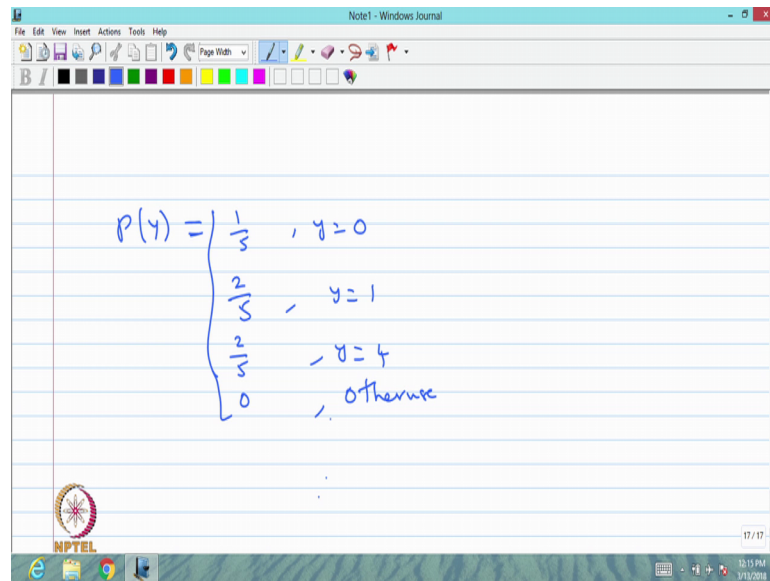 Note1 - Windows Journal
File Edit View Insert Actions Tools Help
Page Width
B I
P(y) = 1/5 , y=0
2/5 , y=1
2/5 , y=4
0 , otherwise
NPTEL
17 / 17
12:15 PM
3/13/2018